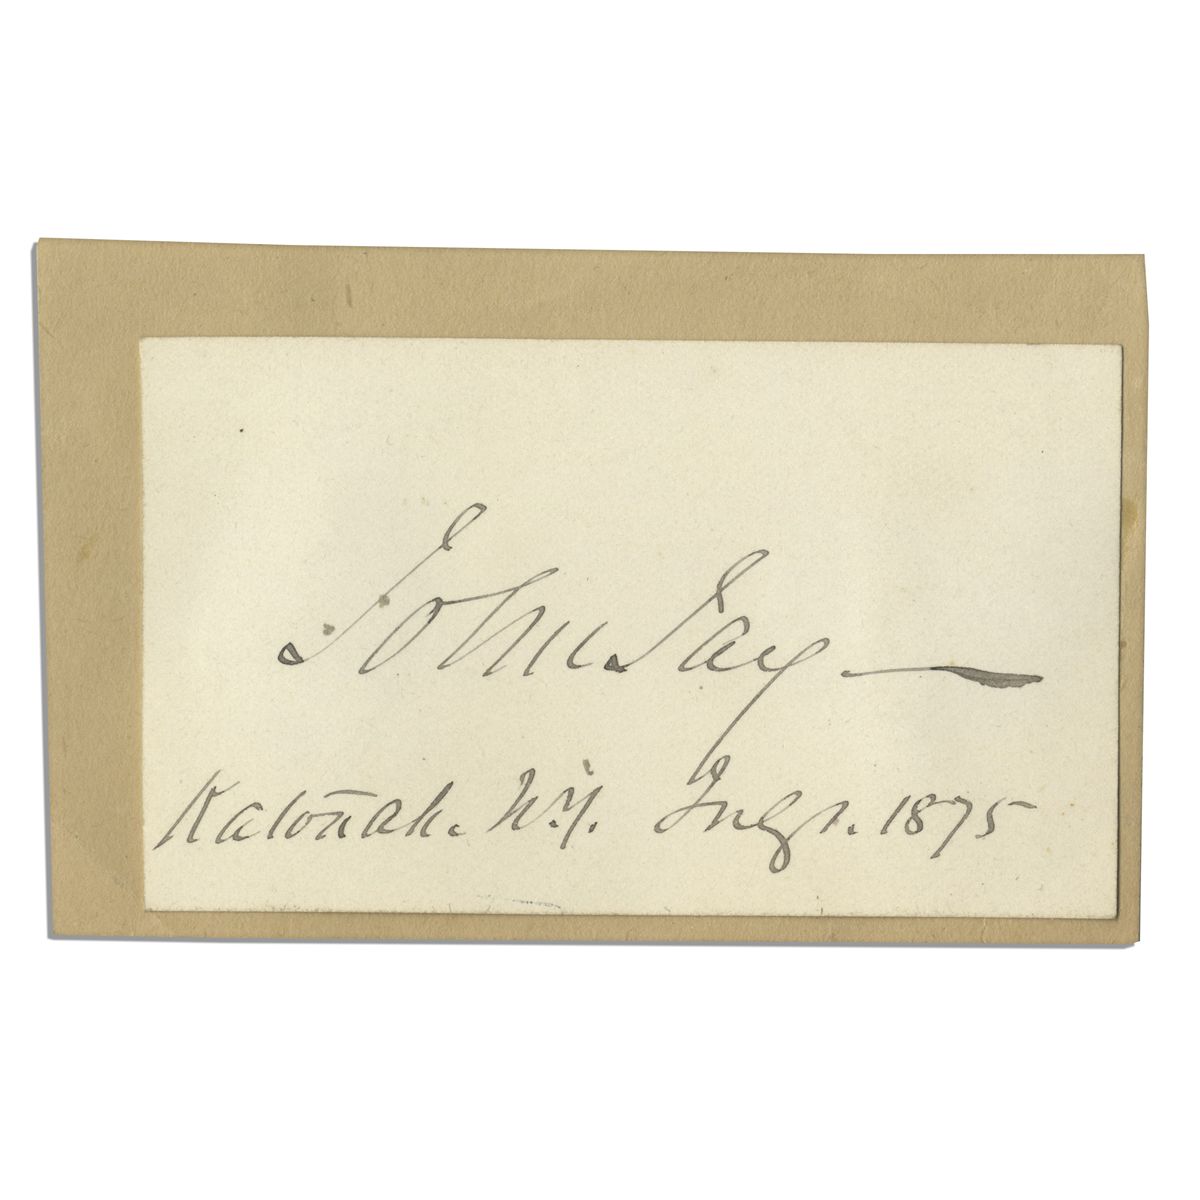 John Jay —
Katonah. N.Y. 1875